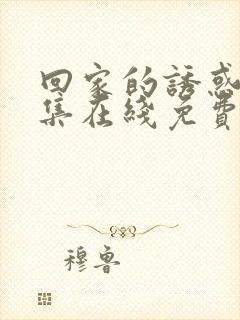 回家的誘惑
集在綫免費
穆魯